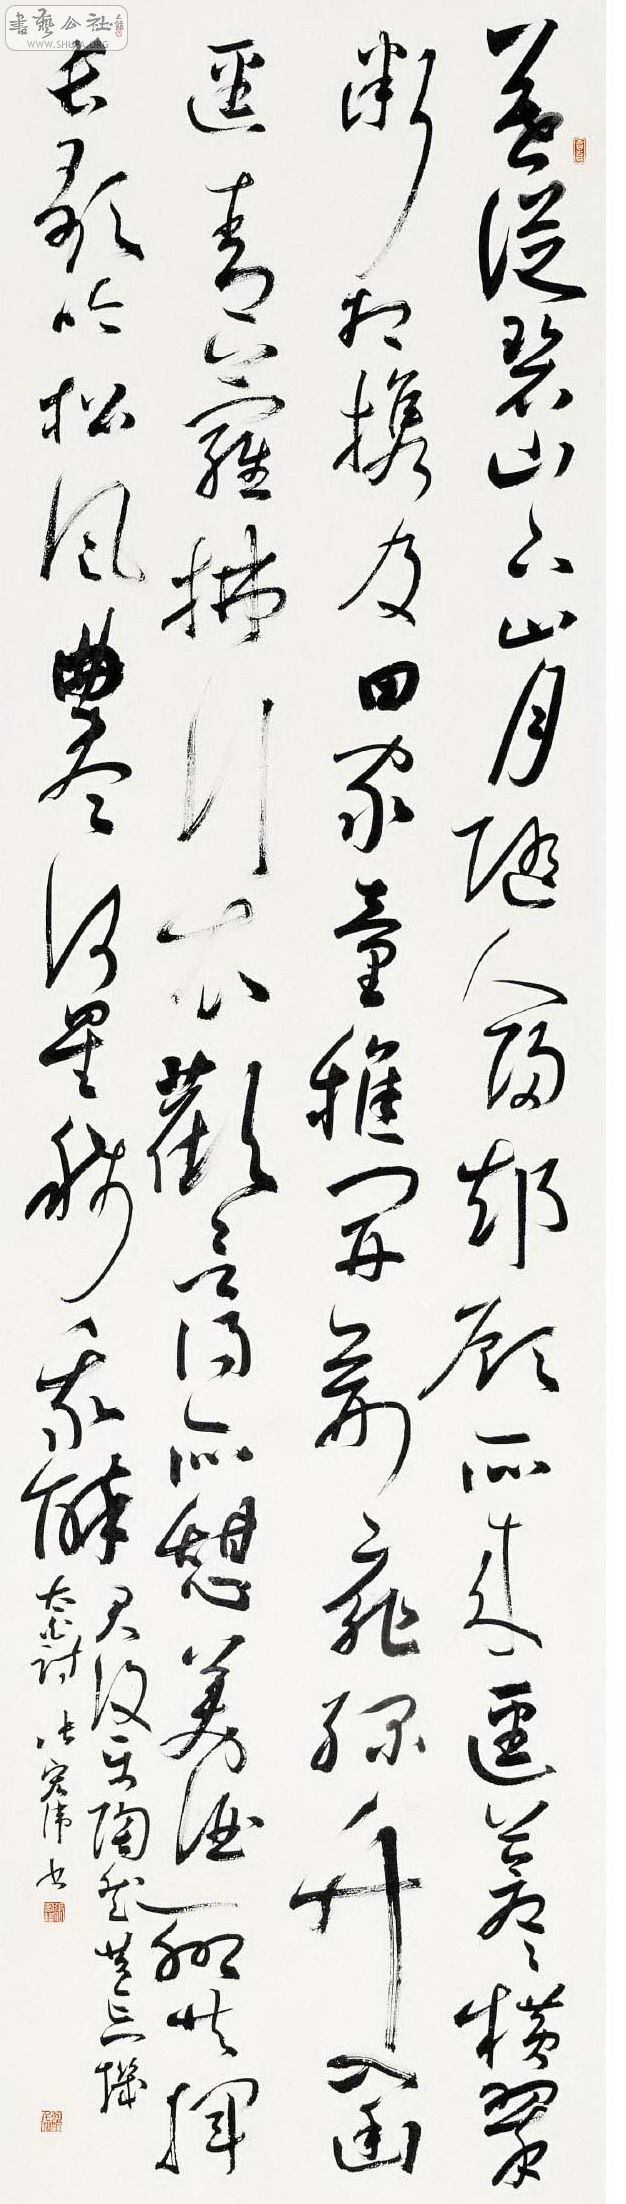 暮從碧山下山月隨人歸却顧所來逕蒼〻橫翠
微相攜及田家童稚開荊扉綠竹入幽
逕青蘿拂行衣歡言得所憩美酒聊共揮
長歌吟松風曲盡河星稀我醉
君復樂陶然共忘機
太白詩 張宏偉書
書藝公社
WWW.SHUFA.ORG